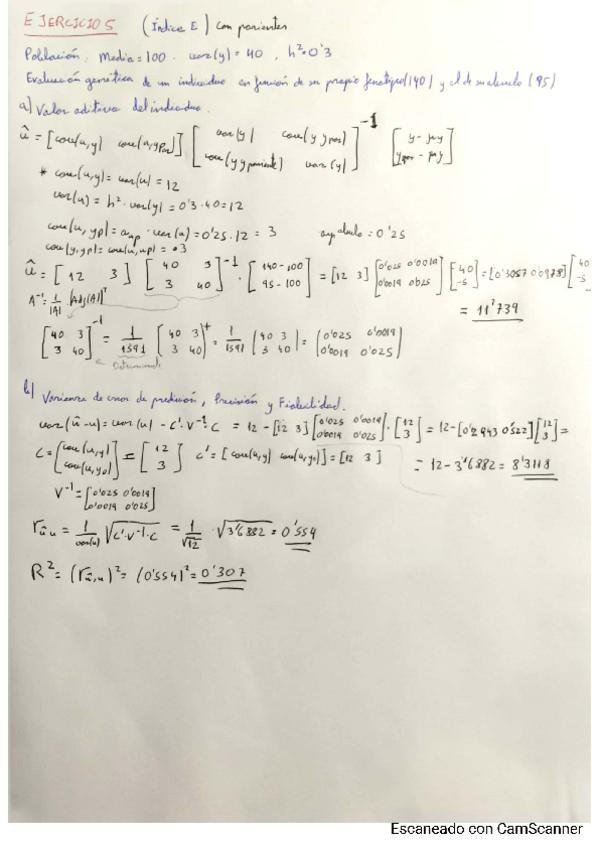 EJERCICIO 5 (Índice E) con parientes
Población. Media = 100. var(y) = 40, h² = 0'3
Evaluación genética de un individuo en función de su propio fenotipo (140) y el de su abuelo (95)
a) Valor aditivo del individuo.
û = [cov(u,y) cov(u,yPar)] [var(y) cov(y ypar) cov(y ypariente) var(y)]⁻¹ [y - μy ypar - μy]
* cov(u,y) = var(u) = 12
var(u) = h² · var(y) = 0'3 · 40 = 12
cov(u,yp) = aup · var(u) = 0'25 · 12 = 3 abuelo = 0'25
cov(y,yp) = cov(u,up) = 3
û = [12 3] [40 3 3 40]⁻¹ · [140-100 95-100] = [12 3] [0'025 0'0019 0'0019 0'025] [40 -5] = [0'3057 0'0978] [40 -5]
A⁻¹ = 1/|A| Adj(A)ᵗ = 11'739
[40 3 3 40]⁻¹ = 1/1591 [40 3 3 40]ᵗ = 1/1591 (40 3 3 40) = (0'025 0'0019 0'0019 0'025)
Determinante
b) Varianza de error de predicción, Precisión y Fiabilidad.
var(û-u) = var(u) - C' · V⁻¹ · C = 12 - [12 3] [0'025 0'0019 0'0019 0'025] · [12 3] = 12 - [0'2943 0'522] [12 3] =
C = [cov(u,y) cov(u,yp)] = [12 3] C' = [cov(u,y) cov(u,yp)] = [12 3] = 12 - 3'6882 = 8'3118
V⁻¹ = [0'025 0'0019 0'0019 0'025]
rûu = 1/var(u) √C' · V⁻¹ · C = 1/√12 · √3'6882 = 0'554
R² = (rû,u)² = (0'554)² = 0'307
Escaneado con CamScanner